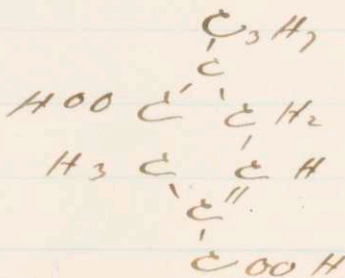 C₃H₇
C
HOOC CH₂
H₃C CH
C
COOH